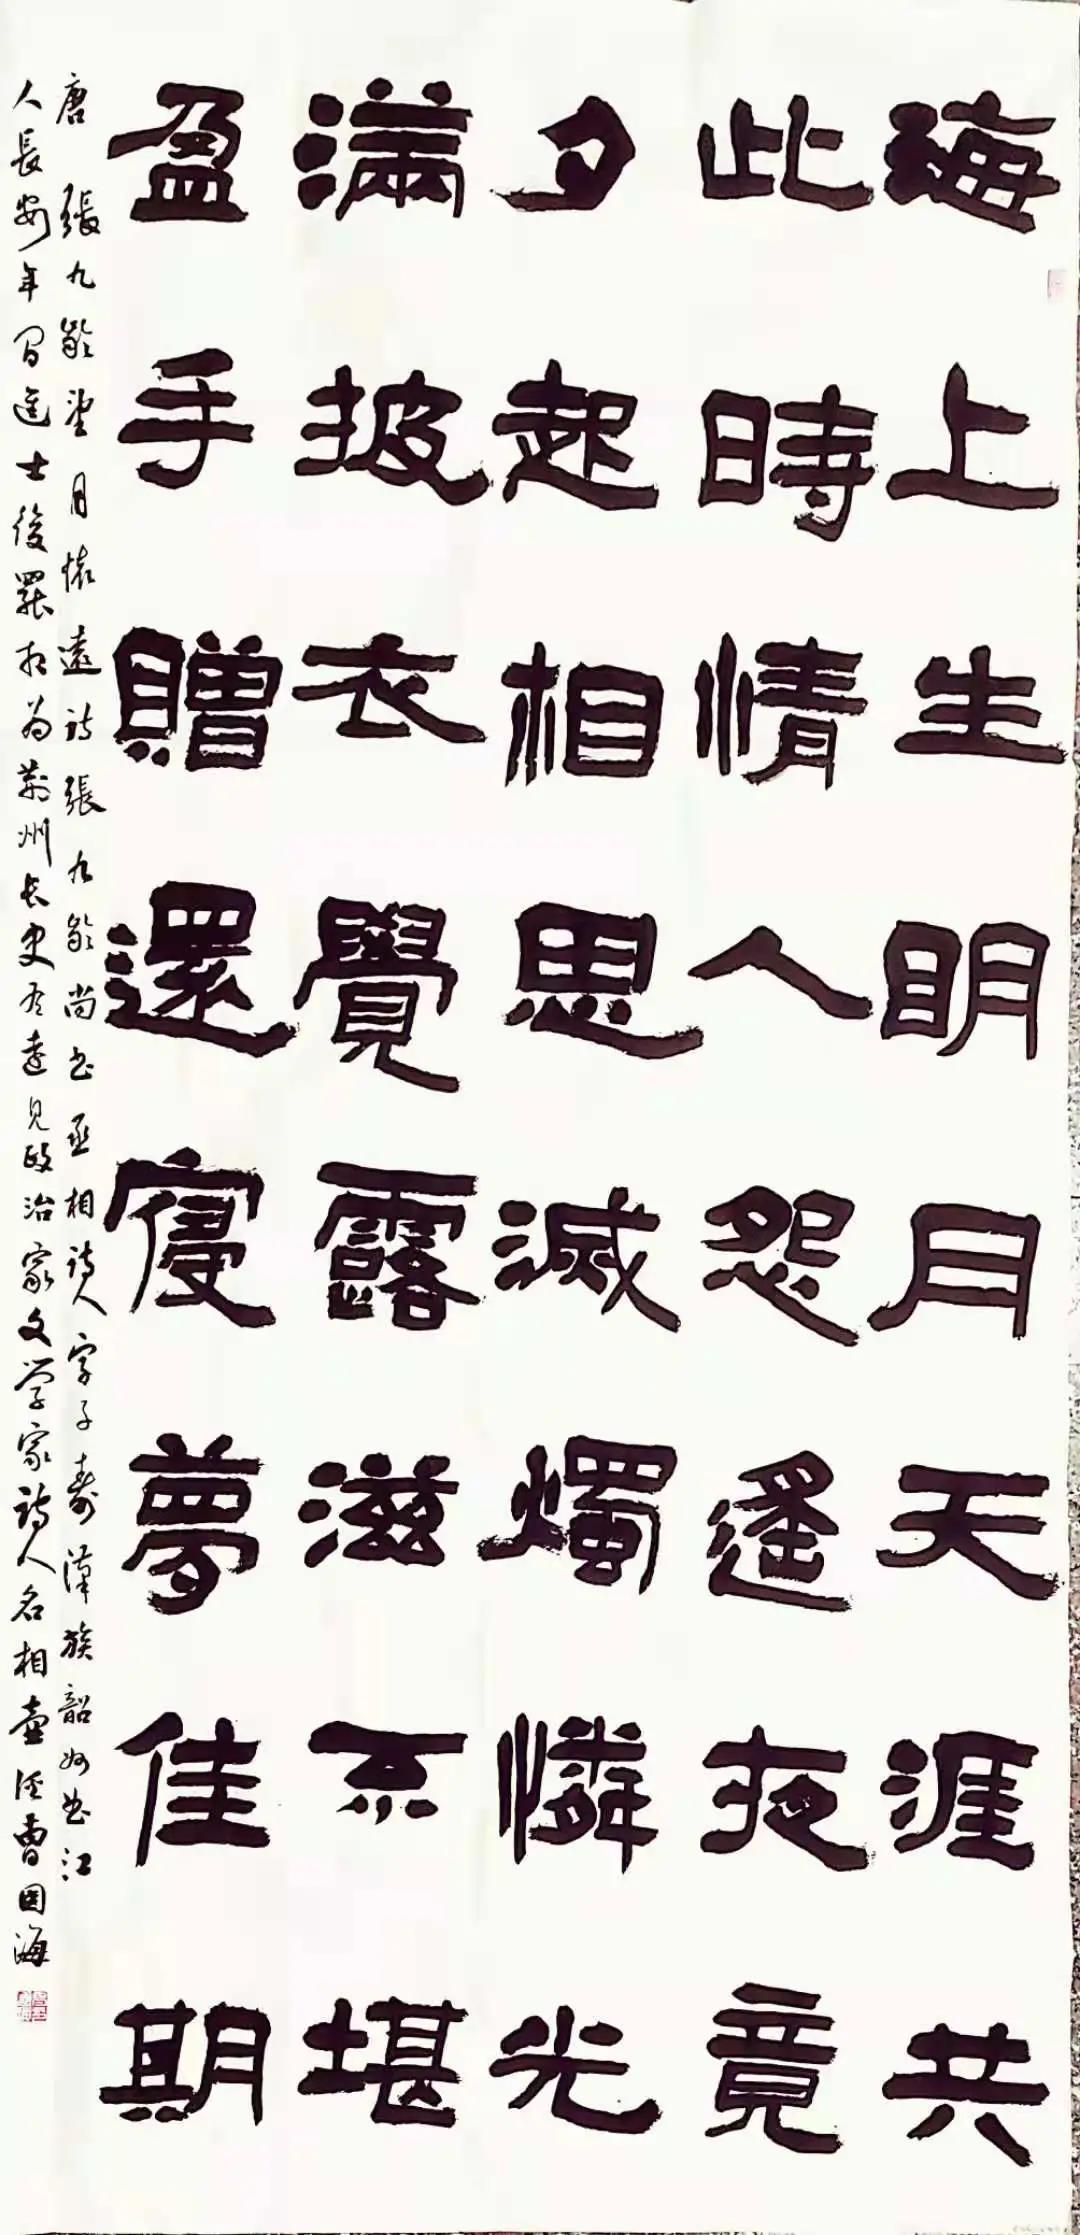 海上生眀月天涯共
此時情人怨遙夜竟
夕起相思滅燭憐光
滿披衣覺露滋不堪
盈手贈還寢夢佳期
唐 張九齡望月懷遠詩張九齡尚书丞相詩人字子壽漢族韶州曲江
人長安年間進士後罷相为荊州长史有遠見政治家文学家詩人名相曹因海